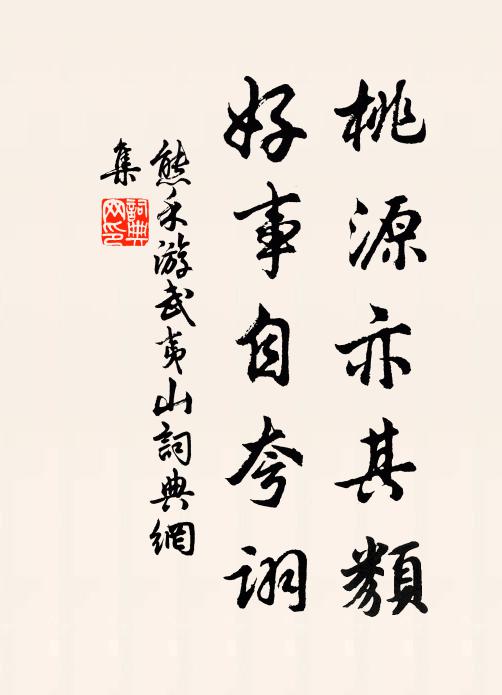 桃源亦其類
好事自夸詡
熊禾游武夷山詞典網
集
詞典
网印